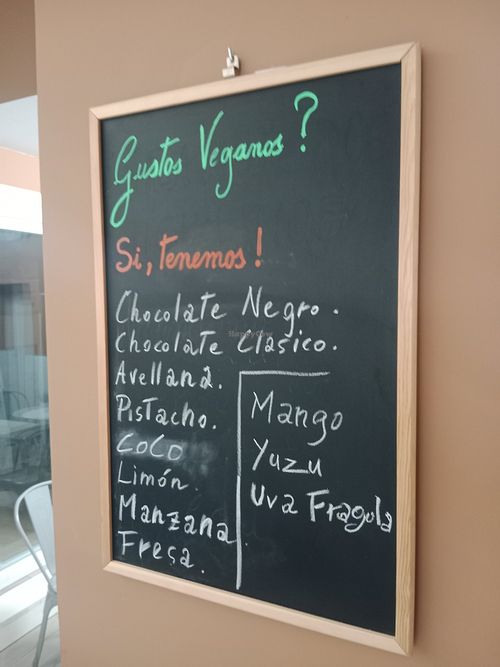 Gustos Veganos?
Si, tenemos!
Chocolate Negro.
Chocolate Clasico.
Avellana.
Pistacho.
COCO
Limón.
Manzana.
Fresa.
Mango
Yuzu
Uva Fragola